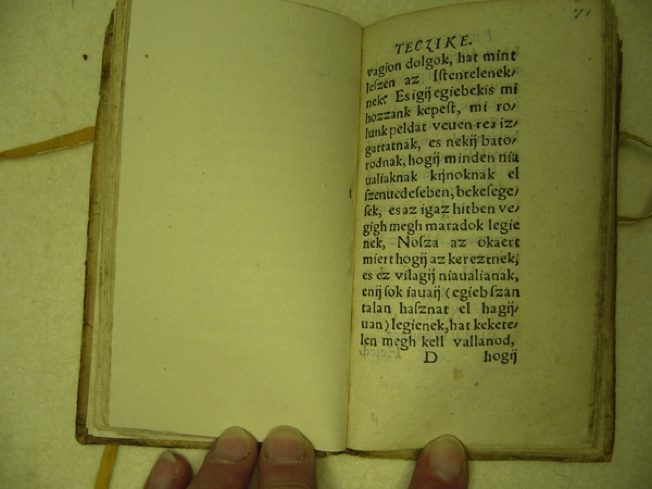 71
TECZIKE.
vagion dolgok, hat mint
leſzen az Iſtentelenek/
nek? Es igij egiebekis mi
hozzank kepeſt, mi ro/
lunk peldat veuen rea iz/
gattatnak, es nekij bato/
rodnak, hogij minden nia
ualiaknak kijnoknak el
ſzenuedeſeben, bekeſege/
ſek, es az igaz hitben ve/
gigh megh maradok legie
nek, Noſza az okaert
miert hogij az kereztnek,
es ez vilagij niaualianak,
enij ſok iauaij (egieb ſzan
talan haſznat el hagij/
uan) legienek, hat kekete/
len megh kell vallanod,
D hogij